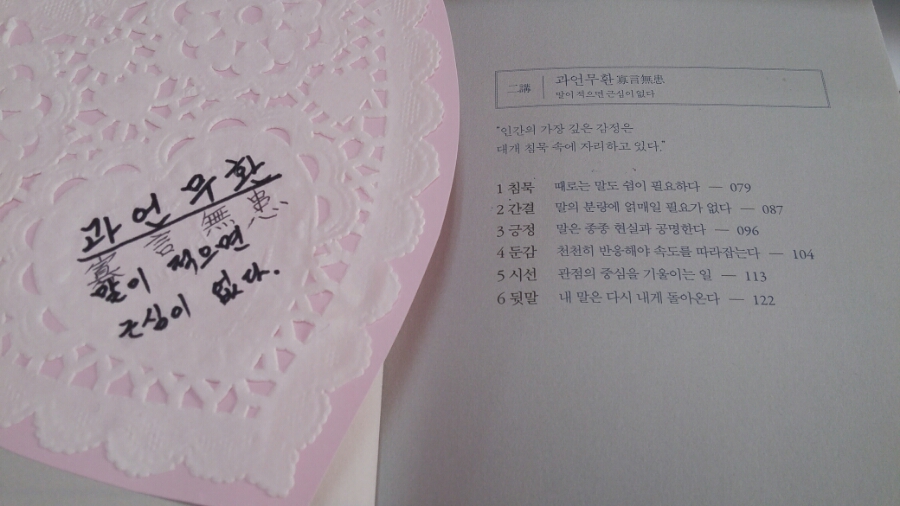 과언무환
寡言無患
말이 적으면
근심이 없다.
二講
과언무환 寡言無患
말이 적으면 근심이 없다
"인간의 가장 깊은 감정은
대개 침묵 속에 자리하고 있다."
1 침묵 때로는 말도 쉼이 필요하다 — 079
2 간결 말의 분량에 얽매일 필요가 없다 — 087
3 긍정 말은 종종 현실과 공명한다 — 096
4 둔감 천천히 반응해야 속도를 따라잡는다 — 104
5 시선 관점의 중심을 기울이는 일 — 113
6 뒷말 내 말은 다시 내게 돌아온다 — 122